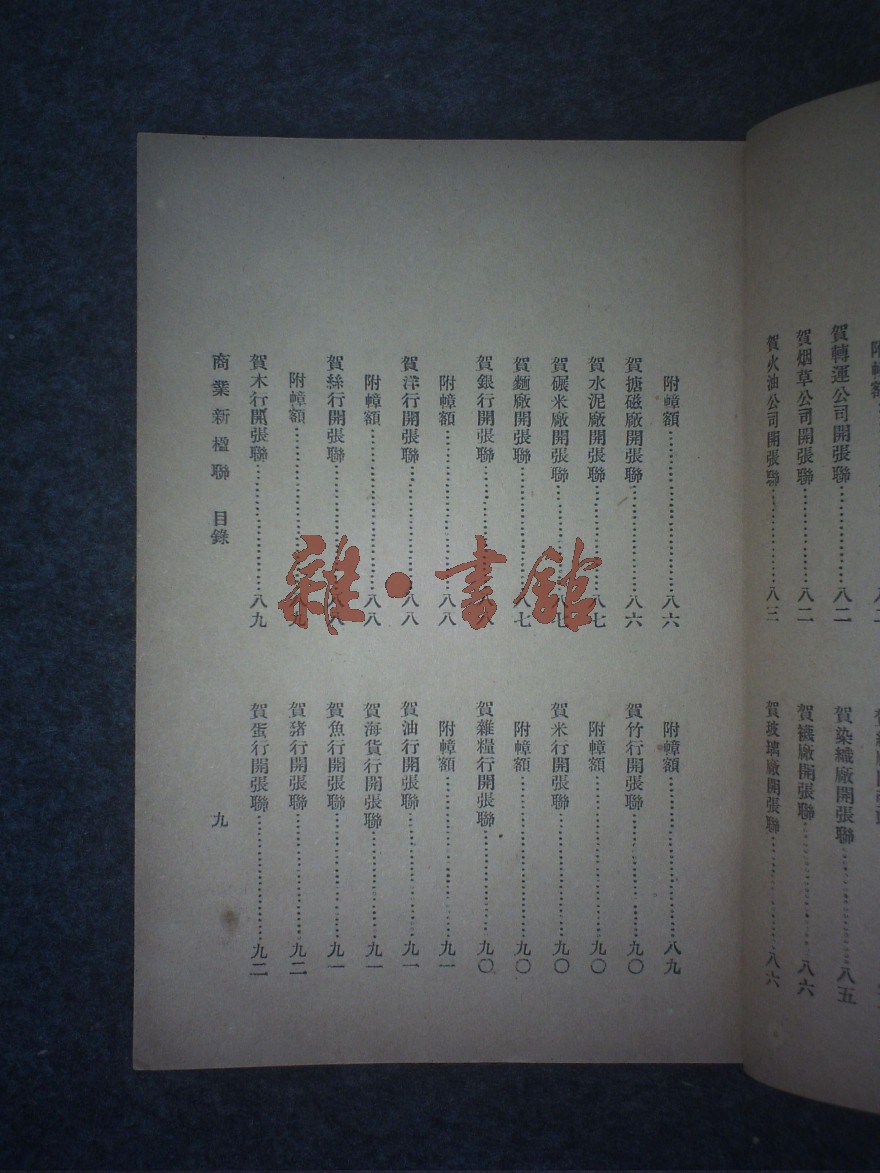 賀轉運公司開張聯……八二
賀烟草公司開張聯……八二
賀火油公司開張聯……八三
賀染織廠開張聯……八五
賀襪廠開張聯……八六
賀玻璃廠開張聯……八六
附幛額……八六
賀搪磁廠開張聯……八六
賀水泥廠開張聯……八七
賀碾米廠開張聯……八七
賀麵廠開張聯……八七
賀銀行開張聯……八
附幛額……八八
賀洋行開張聯……八八
附幛額……八八
賀絲行開張聯……八八
附幛額……八九
賀木行開張聯……八九
附幛額……八九
賀竹行開張聯……九〇
附幛額……九〇
賀米行開張聯……九〇
附幛額……九〇
賀雜糧行開張聯……九〇
附幛額……九一
賀油行開張聯……九一
賀海貨行開張聯……九一
賀魚行開張聯……九一
賀豬行開張聯……九二
賀蛋行開張聯……九二
商業新楹聯 目錄 九
雜·書館